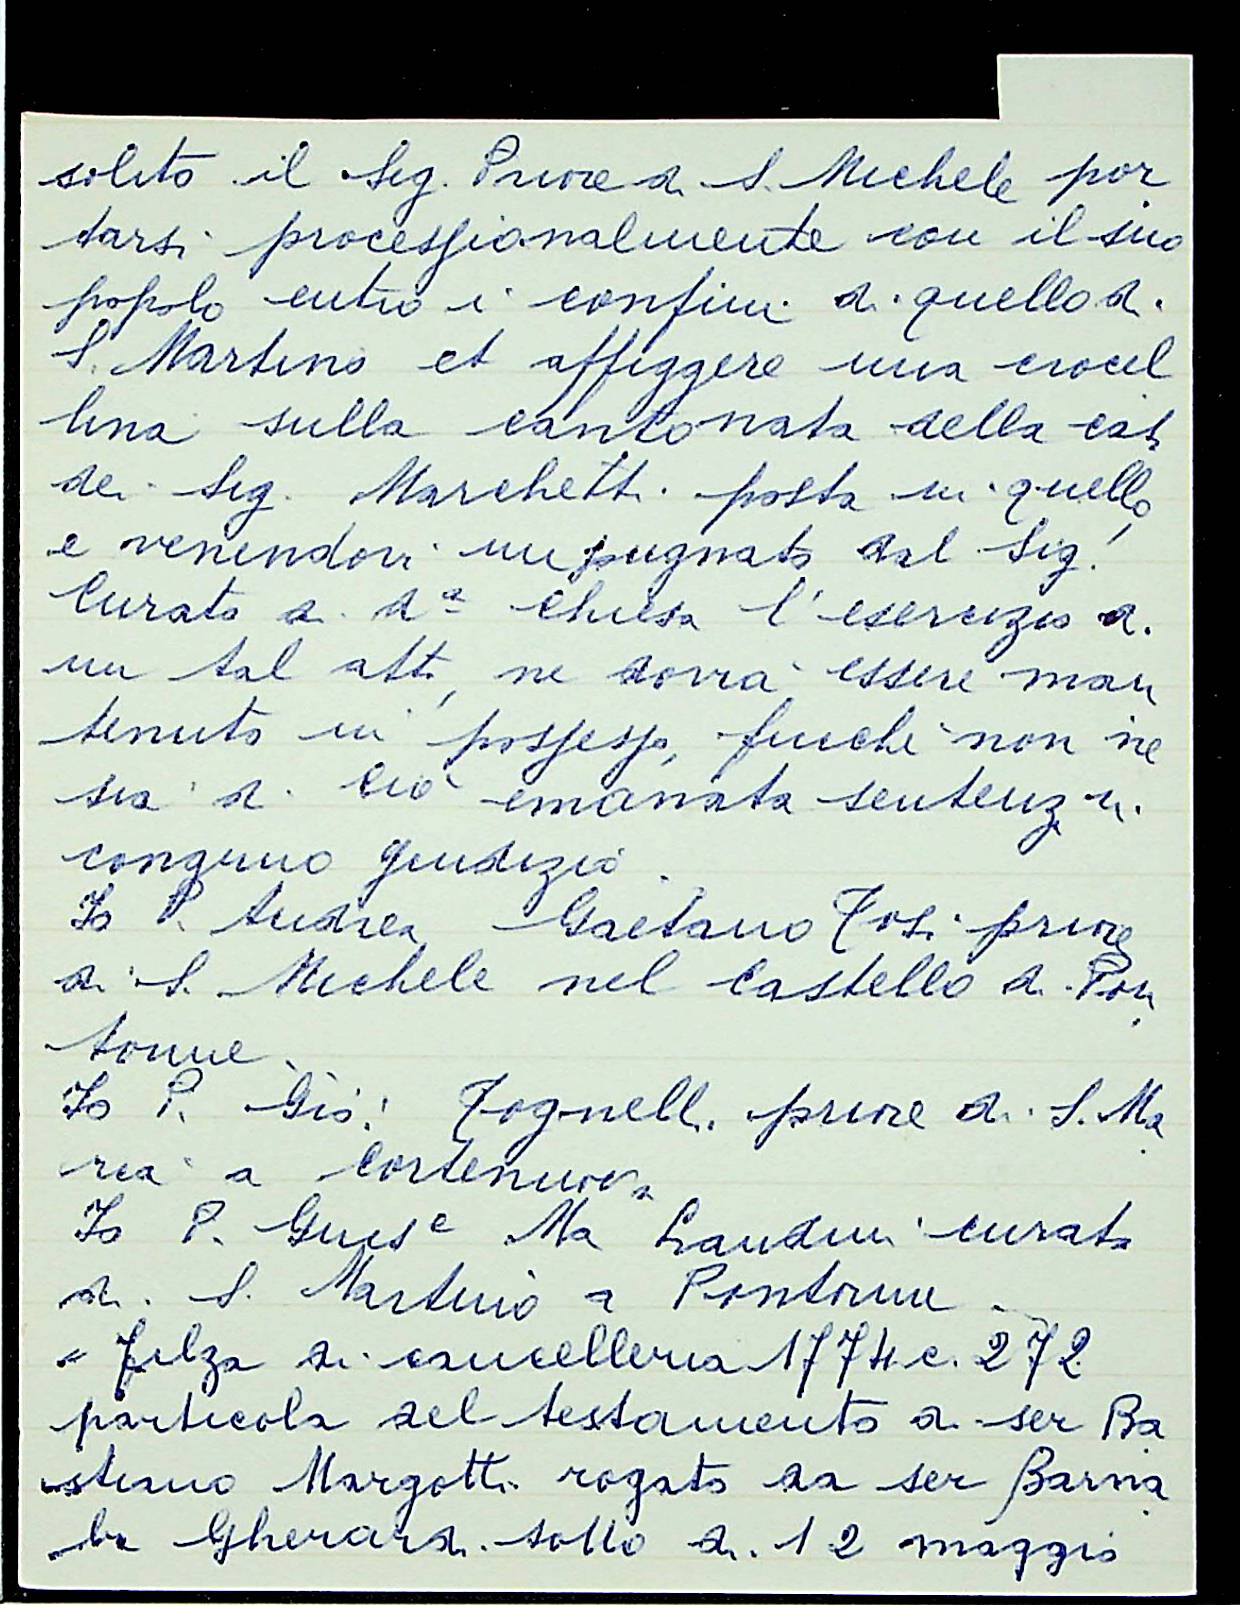 solito il Sig. Priore di S. Michele por
tarsi processionalmente con il suo
popolo entro i confini di quello di
S. Martino et affiggere una crocel
lina sulla cantonata della casa
dei Sig. Marchetti posta in quello,
e venendovi impugnato dal Sig.
Curato di d.ª Chiesa l'esercizio di
un tal atto, ne dovrà essere man
tenuto in possesso, finchè non ne
sia di ciò emanata sentenza in
congruo giudizio.
Io P. Andrea Gaetano Tosi priore
di S. Michele nel Castello di Pon
torme.
Io P. Gio: Tognelli priore di S. Ma
ria a Cortenuova
Io P. Giuse Ma Landini curato
di S. Martino a Pontorme.
" Filza di cancelleria 1774 c. 272
particola del testamento di ser Ba
stiano Margotti rogato da ser Barna
ba Gherardi sotto di 12 maggio